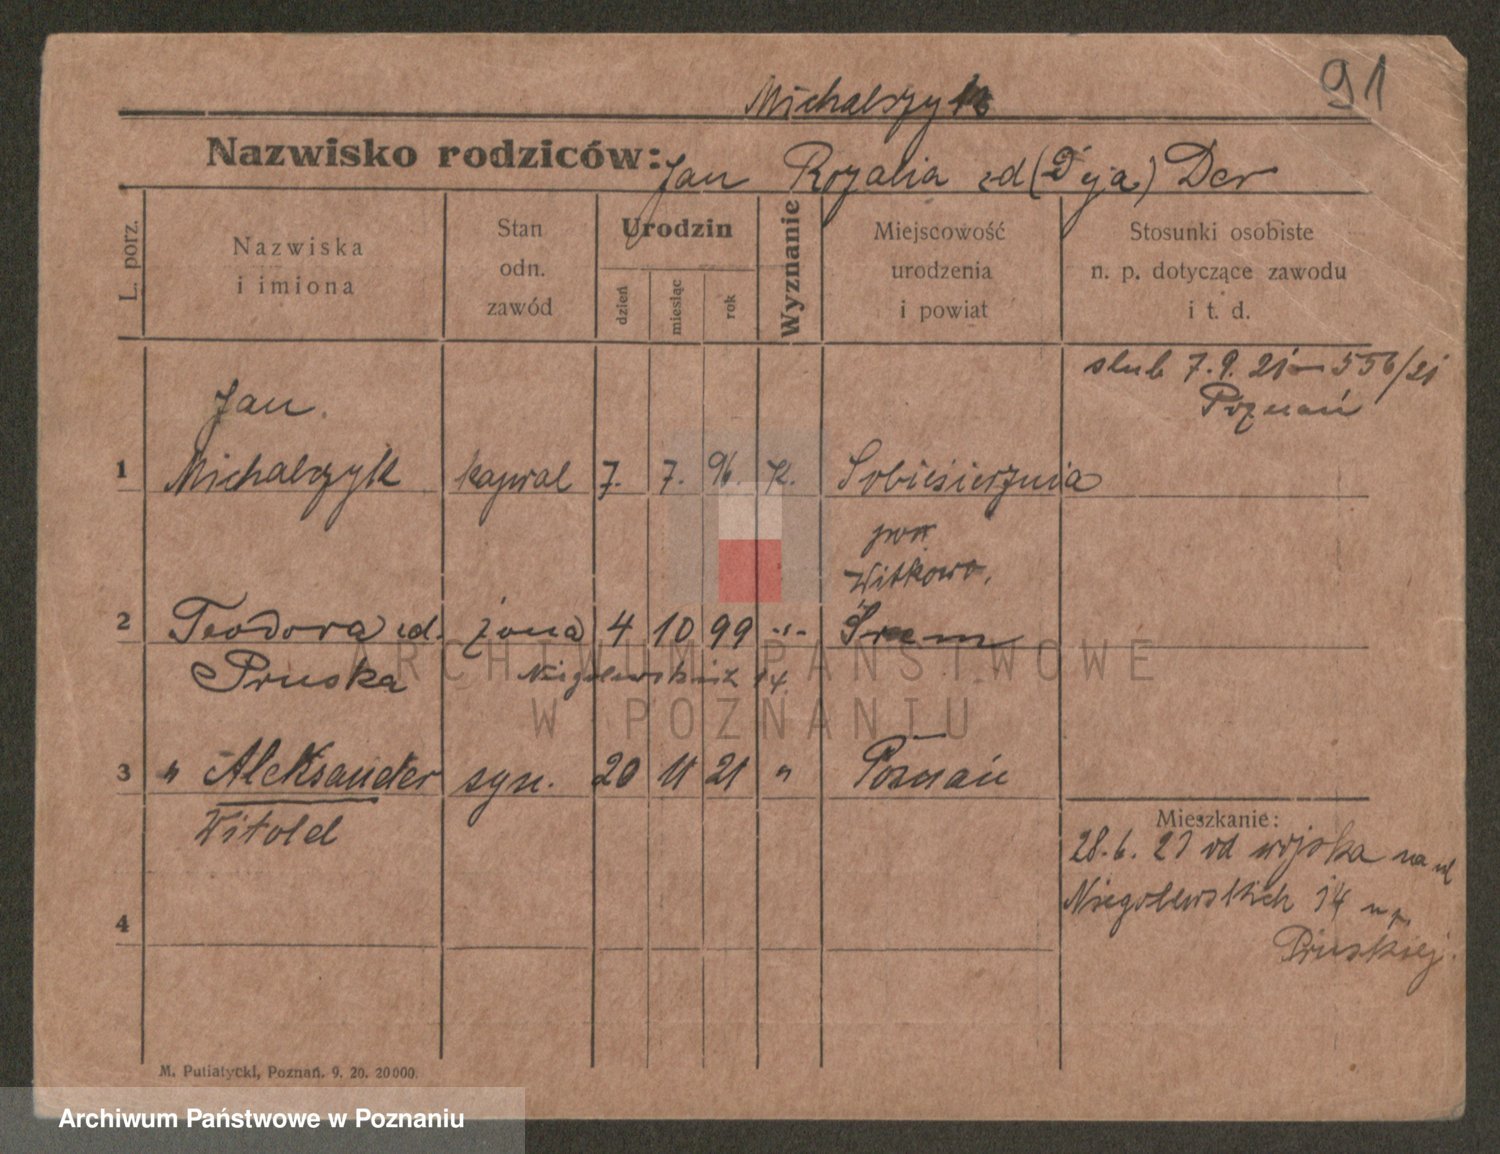 91
Michalszyk
Nazwisko rodziców: Jan Rozalia zd (Deja) Der
L. porz.
Nazwiska
i imiona
Stan
odn.
zawód
Urodzin
dzień
miesiąc
rok
Wyznanie
Miejscowość
urodzenia
i powiat
Stosunki osobiste
n. p. dotyczące zawodu
i t. d.
slub 7.9.21 – 556/21
Poznań
Jan
1 Michalszyk kapral 7. 7. 96. K. Sobiesiernia
pow
Witkowo.
2 Teodora zd. żona 4 10 99 -"- Śrem
Pruska Niegolewskich 14
3 " Aleksander syn. 20 11 21 " Poznań
Witold
Mieszkanie:
28.6.21 od wojska na ul
Niegolewskich 14
Pruskiej.
4
M. Putiatycki, Poznań. 9. 20. 20000.
ARCHIWUM PAŃSTWOWE
W POZNANIU
Archiwum Państwowe w Poznaniu